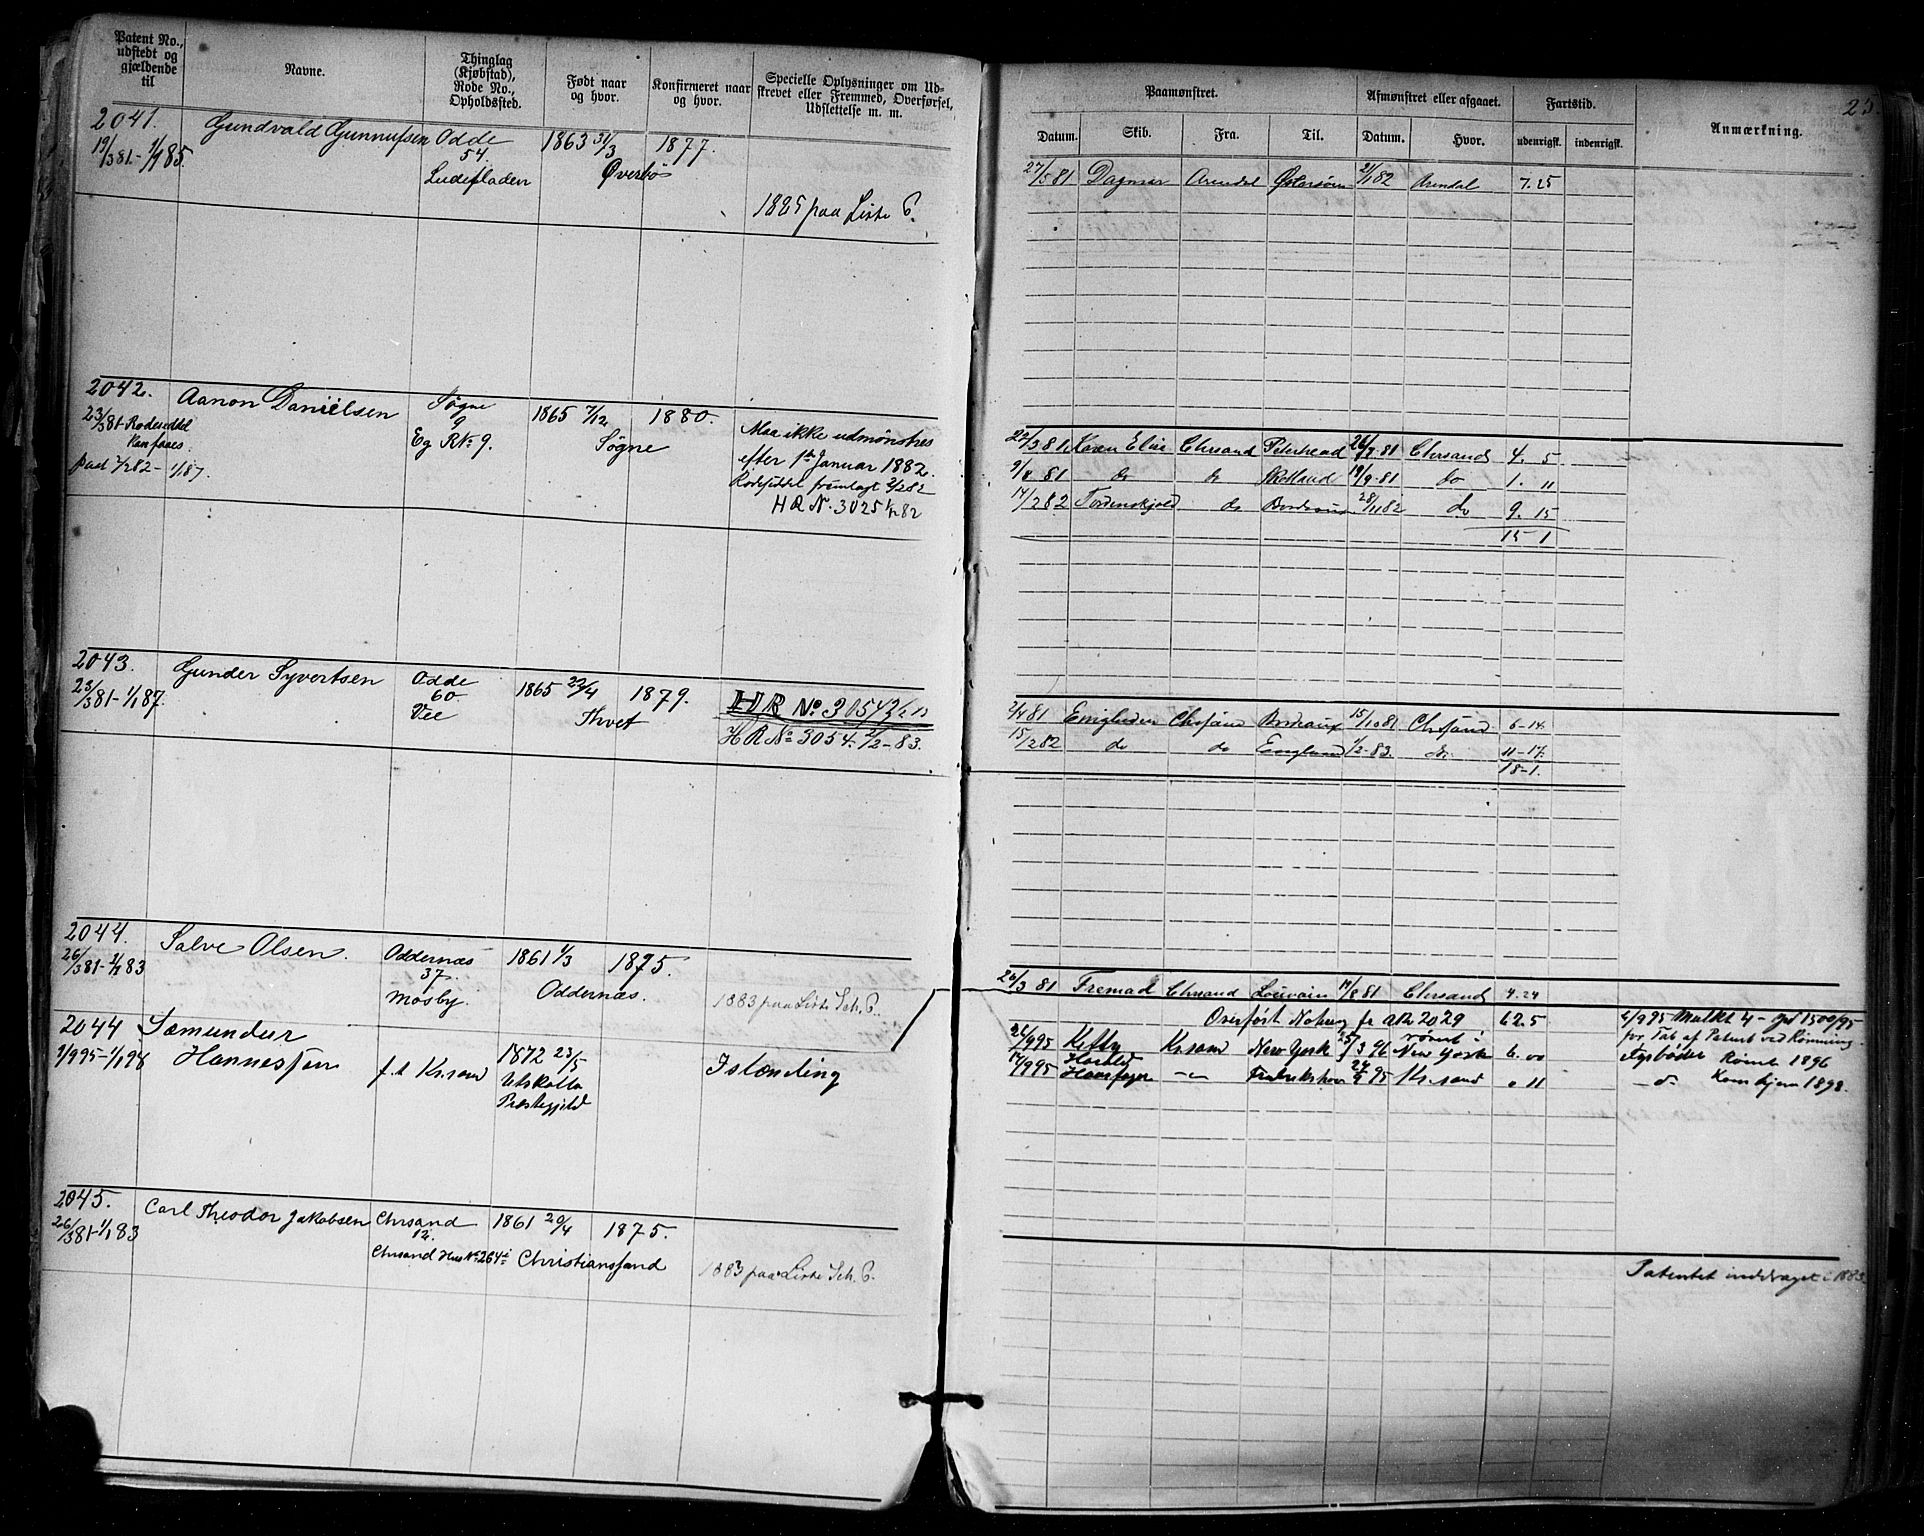 Patent No.,
udstedt og
gjældende
til
Navne.
Thinglag
(Kjøbstad),
Rode No.,
Opholdssted.
Født naar
og hvor.
Konfirmeret naar
og hvor.
Specielle Oplysninger om Ud-
skrevet eller Fremmed, Overførsel,
Udslettelse m. m.
2041.
19/3 81 - 1/1 85.
Gundvald Gunnufsen
Odde
54.
1863 31/3
Øverbös
1877.
1885 paa Liste C.
2042.
23/3 81 Rodeseddel
Aanon Daniëlsen
Søgne
9
Eg R No 9.
1865 7/12
Søgne
1880.
Maa ikke udmønstres
efter 1ste Januar 1882.
Rodeseddel fremlagt 2/2 82
H R N. 3025 82
2043.
23/3 81 - 1/1 87.
Gunder Syvertsen
Odde
60
Vee
1865 22/4
Thvet
1879.
H R No 3054
H R No 3054. 2/2 - 83.
2044.
26/3 81 - 1/1 83
Salve Olsen.
Oddernæs
37.
Mosby.
1861 1/3
Oddernæs.
1875.
1883 paa Liste Sch. C.
2044
Sæmundur
Hannessøn
f.t Kr.sand
1872 23/5
Utskalla
Præstegjeld
Islænding
2045.
26/3 81 - 1/1 83
Carl Theodor Jakobsen
Chrsand
12.
Chrsand Hus No 264
1861 20/4
Christianssand
1875.
1883 paa Liste Sch. C.
25.
Paamønstret.
Afmønstret eller afgaaet.
Fartstid.
Anmærkning.
Datum.
Skib.
Fra.
Til.
Datum.
Hvor.
udenrigsk.
indenrigsk.
27/5 81 Dagmar Arendal Østersøen 2/1 82 Arendal 7. 25
22/3 81 Karen Elise Chrsand Peterhead 26/7 81 Chrsand 4. 5
9/8 81 do do Shetland 19/9 81 do 1. 11
14/2 82 Tordenskjold do Bordeaux 28/11 82 do 9. 15
15 1
2/4 81 Chrsand Bordeaux 15/10 81 Chrsand 6-14.
15/2 82 do do England 1/2 83. do 11-17.
18-1.
26/3 81 Fremad Chrsand Louvain 19/8 81 Chrsand 4.24
Overført fr 2029 62.5
26/9 95 Ketty Kr.sand New York 3 96 New York 6. 00
14/9 95 Harald
Haarfager 95 Kr.sand " 11
Mulkt 4
for Tab af Patent ved Rømning
Rømt 1896
- do. Kom hjem 1898.
Patentet inddraget i 1883.